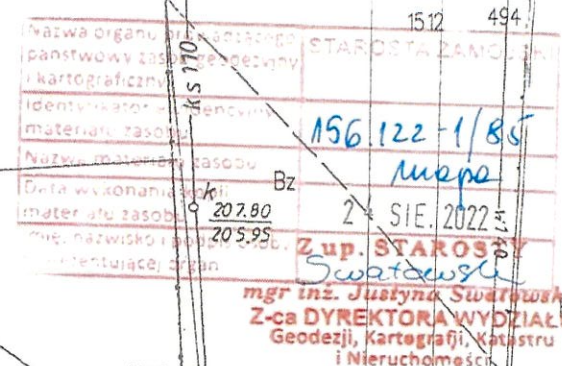 1512 494
Nazwa organu prowadzącego
państwowy zasób geodezyjny
i kartograficzny
STAROSTA ZAMOJSKI
ks 110
Identyfikator ewidencyjny
materiału zasobu
156.122-1/85
Nazwa materiału zasobu
mapa
Bz
Data wykonania kopii
materiału zasobu
24 SIE. 2022
k
207.80
205.95
w140
Imię, nazwisko i podpis osoby
reprezentującej organ
Z up. STAROSTY
mgr inż. Justyna Swatowsk
Z-ca DYREKTORA WYDZIAŁ
Geodezji, Kartografji, Katastru
i Nieruchomości